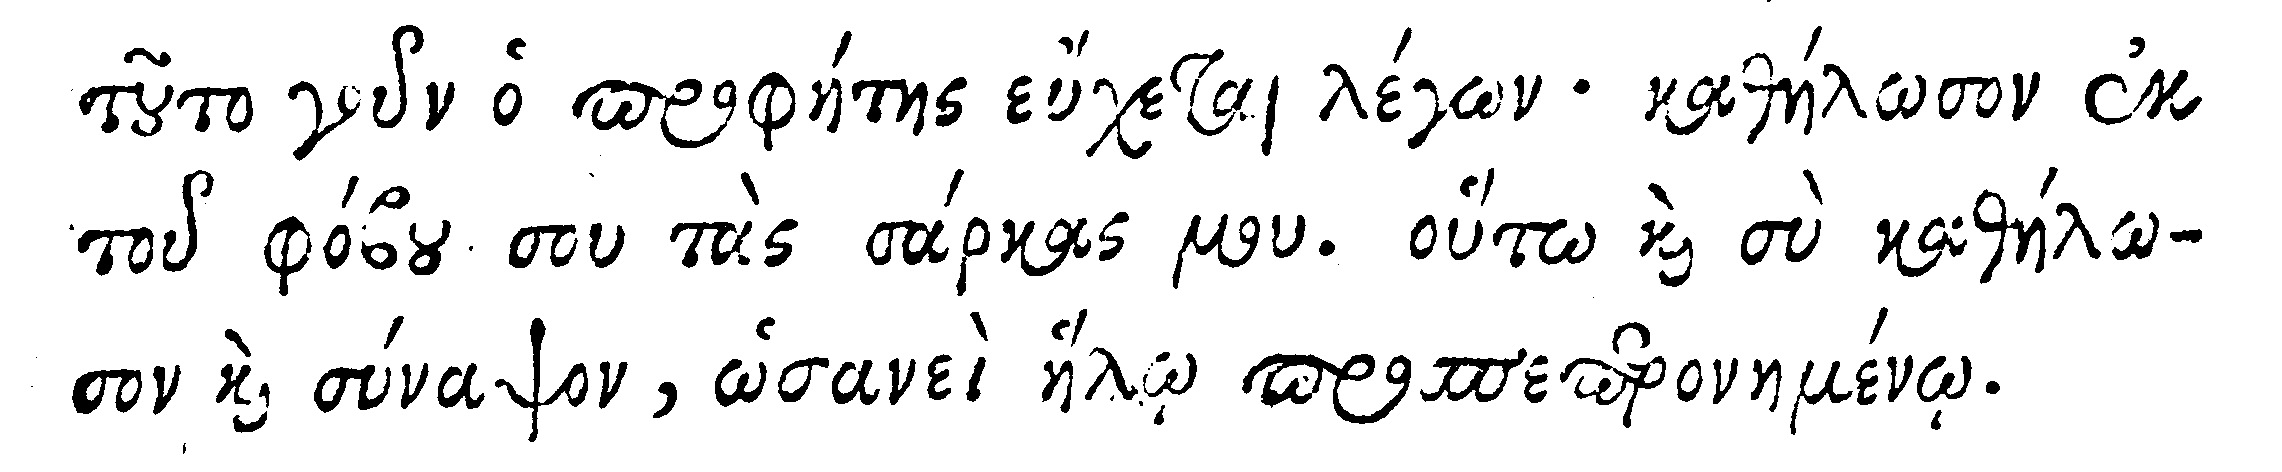 τοῦτο γοῦν ὁ προφήτης εὔχεται λέγων· καθήλωσον ἐκ
τοῦ φόβου σου τὰς σάρκας μου. οὕτω ϗ̀ σὺ καθήλω-
σον ϗ̀ σύναψον, ὡσανεὶ ἥλῳ προσπεπερονημένῳ.